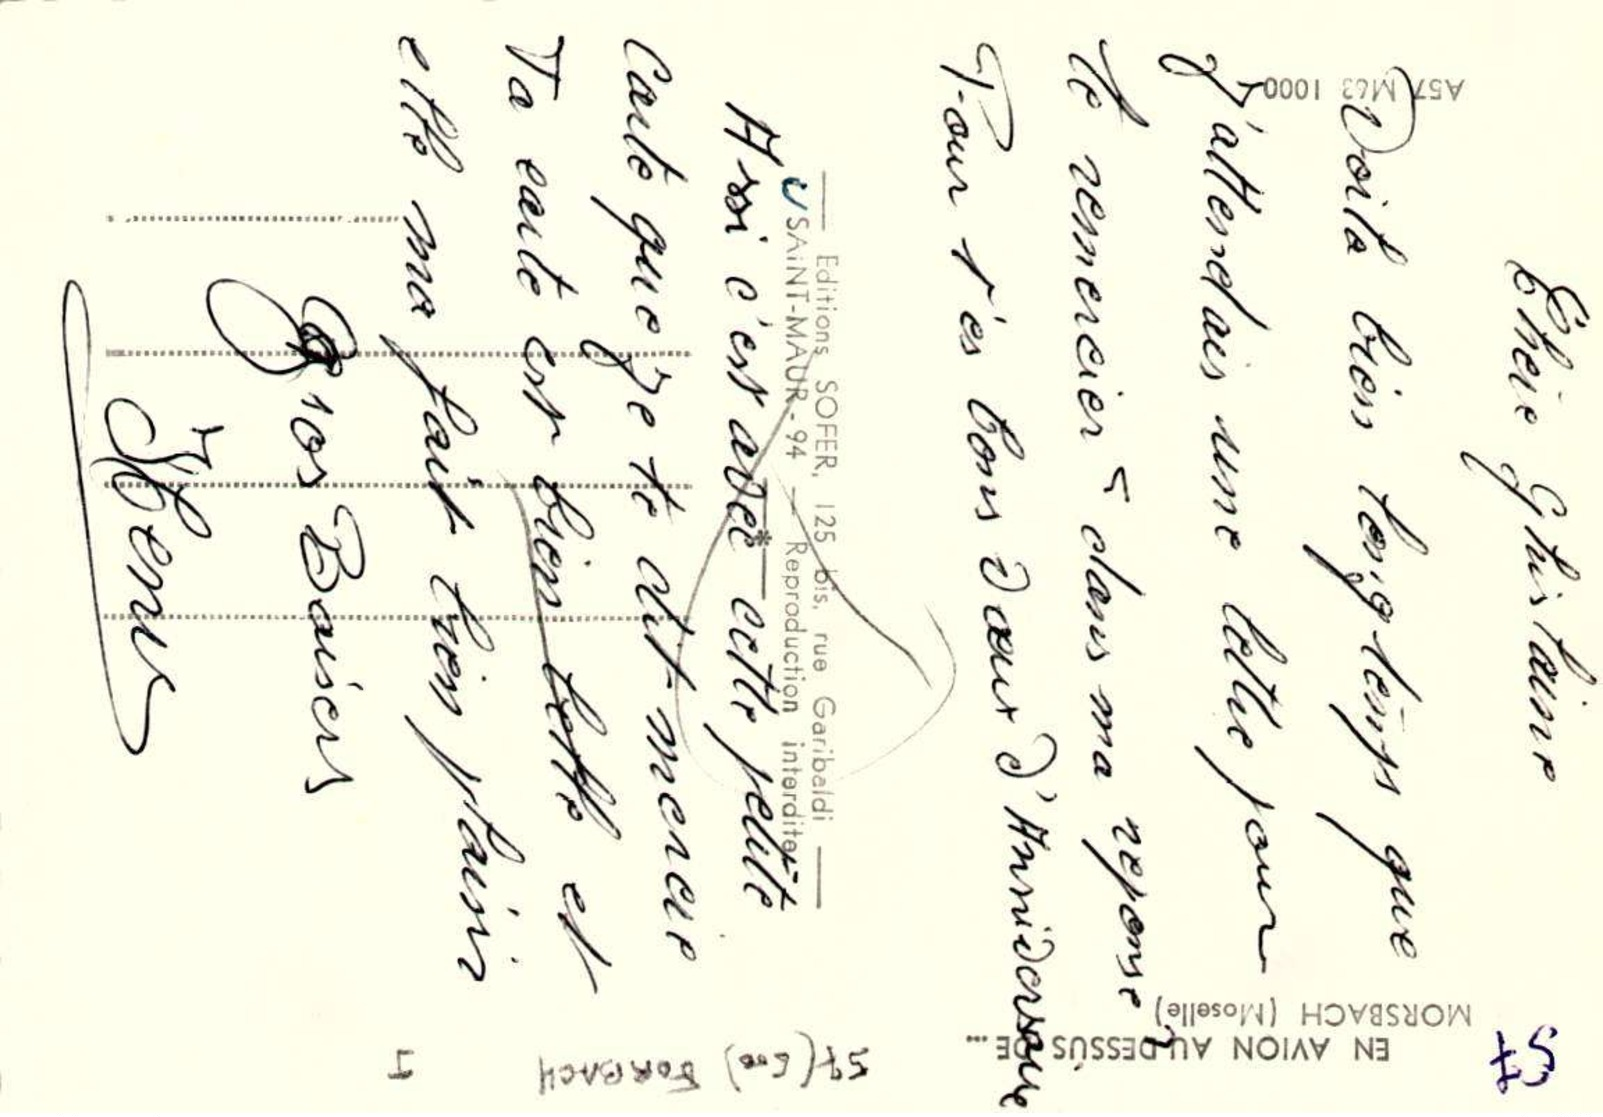 Chère Ghislaine
Voila bien longtemps que
J'attendais une lettre pour
te remercier dans ma reponse
Pour t'es bons vœux d'Anniversaire
Assi c'est avec cette petite
Carte que je te dit merci
Ta carte est bien belle et
elle ma fait bien plaisir
Gros Baisers
EN AVION AU-DESSUS DE...
MORSBACH (Moselle)
A57 M63 1000
Editions SOFER, 125 bis, rue Garibaldi
SAINT-MAUR - 94 — Reproduction interdite
57 (600) FORBACH
I
57